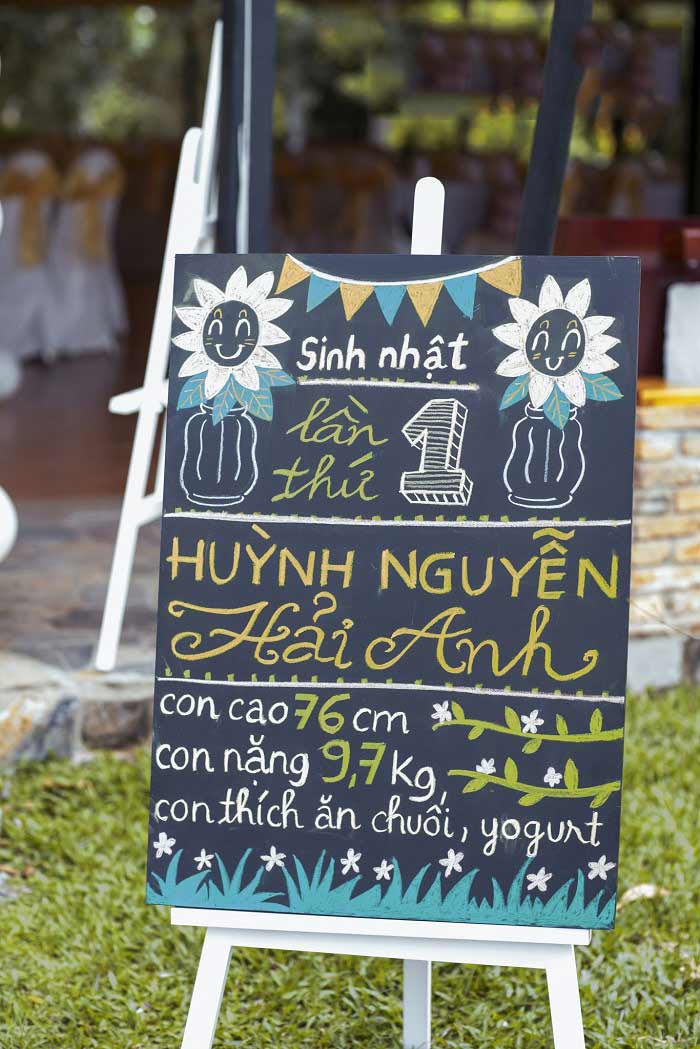 Sinh nhật
lần
thứ 1
HUỲNH NGUYỄN
Hải Anh
con cao 76 cm
con nặng 9,7 Kg,
con thích ăn chuối, yogurt